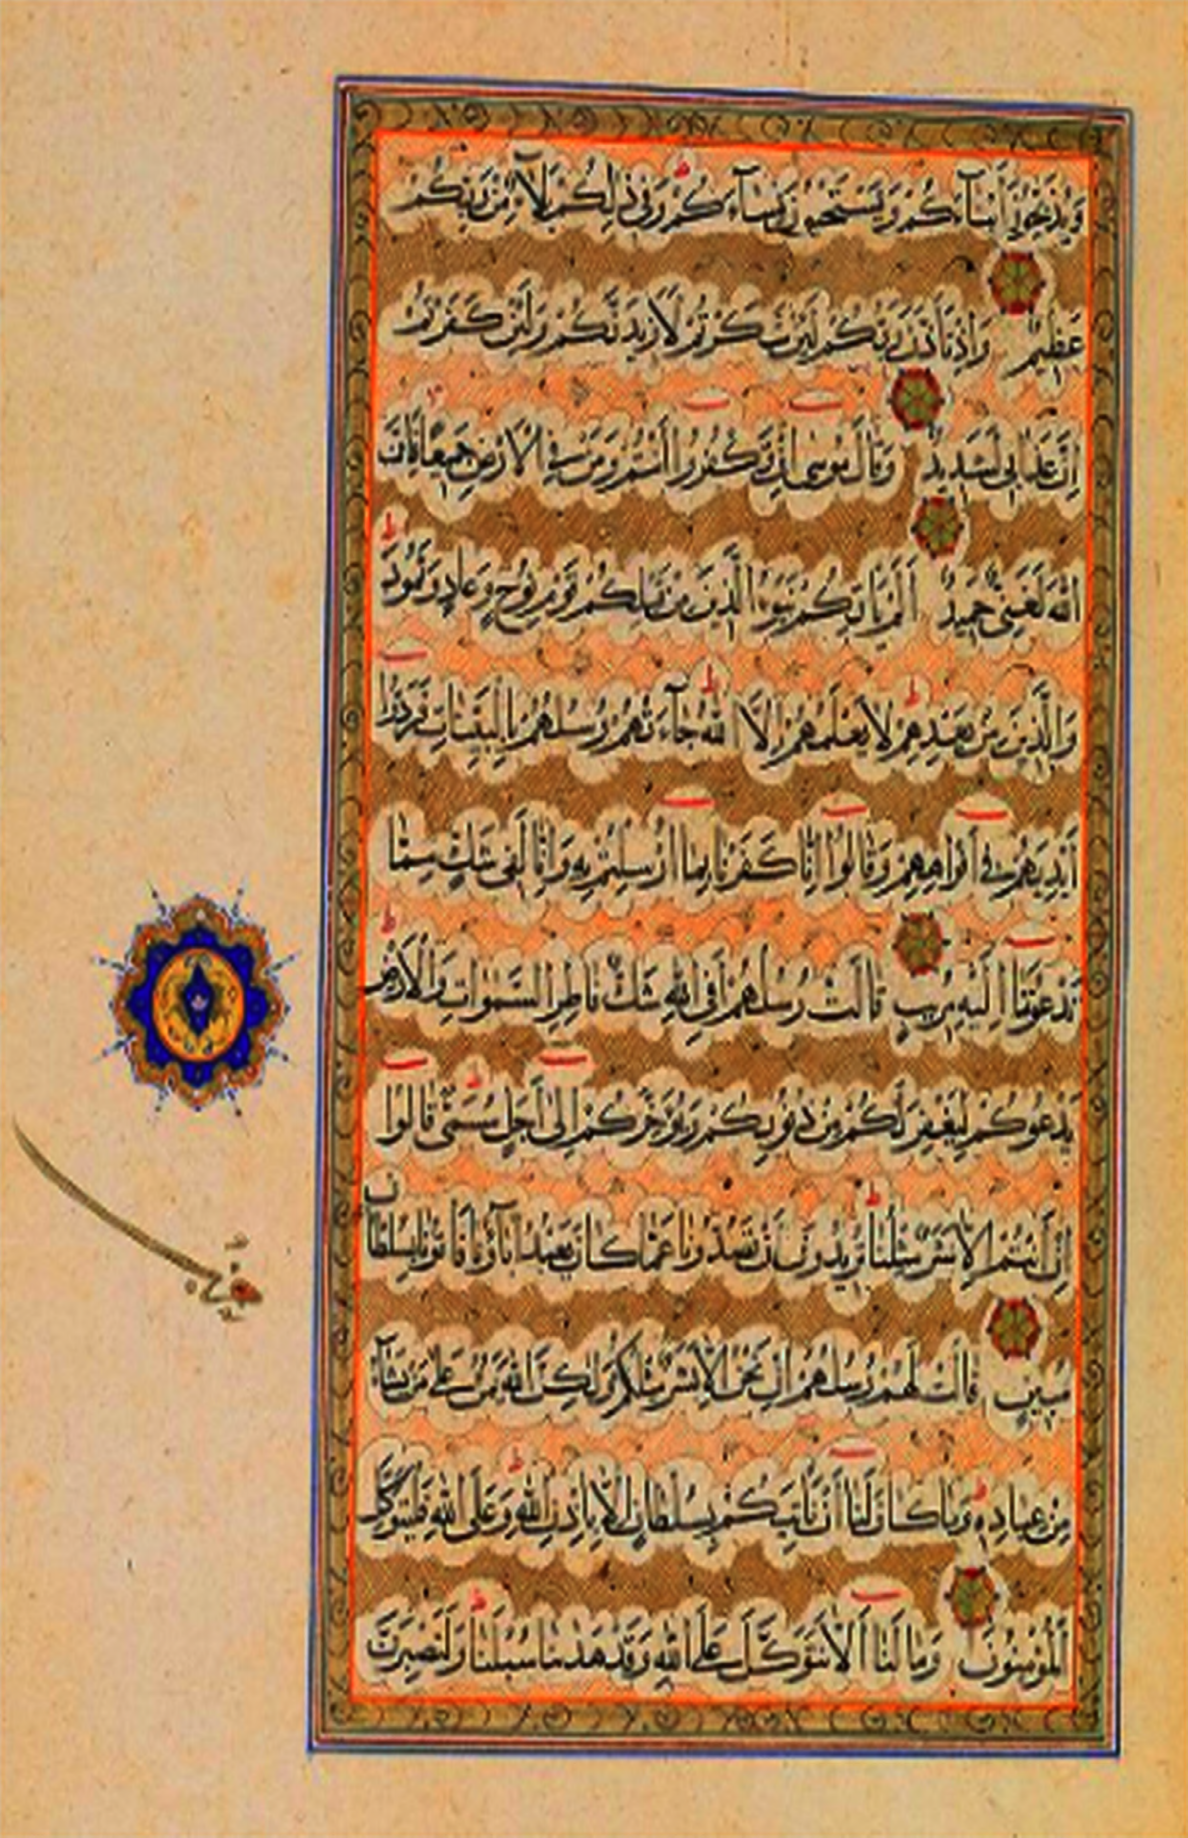 وَيُذَبِّحُونَ أَبْنَآءَكُمْ وَيَسْتَحْيُونَ نِسَآءَكُمْ وَفِي ذٰلِكُمْ بَلَآءٌ مِنْ رَبِّكُمْ
عَظِيمٌ وَإِذْ تَأَذَّنَ رَبُّكُمْ لَئِنْ شَكَرْتُمْ لَأَزِيدَنَّكُمْ وَلَئِنْ كَفَرْتُمْ
إِنَّ عَذَابِي لَشَدِيدٌ وَقَالَ مُوسٰى إِنْ تَكْفُرُوا أَنْتُمْ وَمَنْ فِي الْأَرْضِ جَمِيعًا فَإِنَّ
اللّٰهَ لَغَنِيٌّ حَمِيدٌ أَلَمْ يَأْتِكُمْ نَبَؤُا الَّذِينَ مِنْ قَبْلِكُمْ قَوْمِ نُوحٍ وَعَادٍ وَثَمُودَ
وَالَّذِينَ مِنْ بَعْدِهِمْ لَا يَعْلَمُهُمْ إِلَّا اللّٰهُ جَآءَتْهُمْ رُسُلُهُمْ بِالْبَيِّنَاتِ فَرَدُّوا
أَيْدِيَهُمْ فِي أَفْوَاهِهِمْ وَقَالُوا إِنَّا كَفَرْنَا بِمَا أُرْسِلْتُمْ بِهِ وَإِنَّا لَفِي شَكٍّ مِمَّا
تَدْعُونَنَا إِلَيْهِ مُرِيبٍ قَالَتْ رُسُلُهُمْ أَفِي اللّٰهِ شَكٌّ فَاطِرِ السَّمٰوَاتِ وَالْأَرْضِ
يَدْعُوكُمْ لِيَغْفِرَ لَكُمْ مِنْ ذُنُوبِكُمْ وَيُؤَخِّرَكُمْ إِلٰى أَجَلٍ مُسَمًّى قَالُوا
إِنْ أَنْتُمْ إِلَّا بَشَرٌ مِثْلُنَا تُرِيدُونَ أَنْ تَصُدُّونَا عَمَّا كَانَ يَعْبُدُ اٰبَآؤُنَا فَأْتُونَا بِسُلْطَانٍ
مُبِينٍ قَالَتْ لَهُمْ رُسُلُهُمْ إِنْ نَحْنُ إِلَّا بَشَرٌ مِثْلُكُمْ وَلٰكِنَّ اللّٰهَ يَمُنُّ عَلٰى مَنْ يَشَآءُ
مِنْ عِبَادِهِ وَمَا كَانَ لَنَا أَنْ نَأْتِيَكُمْ بِسُلْطَانٍ إِلَّا بِإِذْنِ اللّٰهِ وَعَلَى اللّٰهِ فَلْيَتَوَكَّلِ
الْمُؤْمِنُونَ وَمَا لَنَا أَلَّا نَتَوَكَّلَ عَلَى اللّٰهِ وَقَدْ هَدٰىنَا سُبُلَنَا وَلَنَصْبِرَنَّ